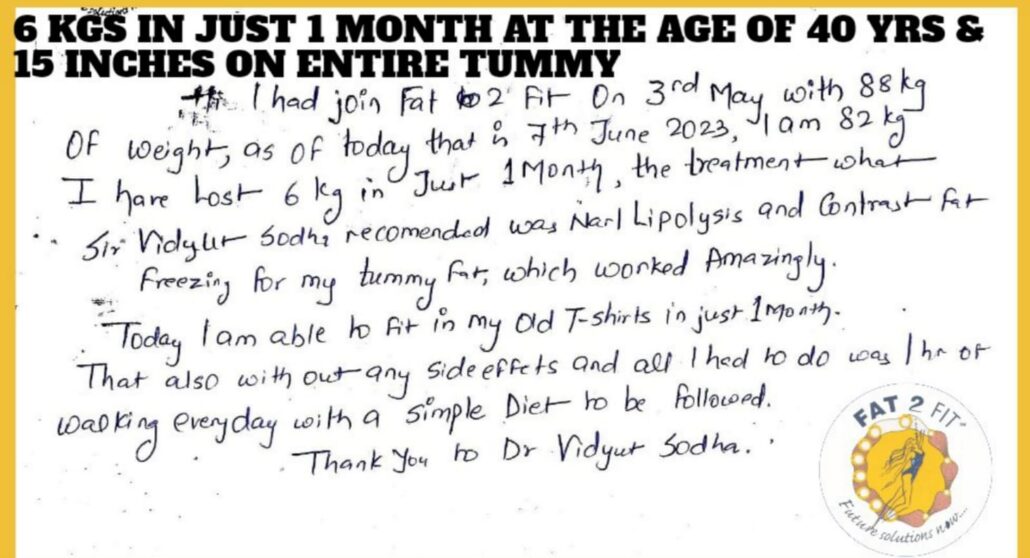 6 KGS IN JUST 1 MONTH AT THE AGE OF 40 YRS &
15 INCHES ON ENTIRE TUMMY
I had join Fat 2 Fit On 3rd May with 88 kg
Of weight, as of today that is 7th June 2023, I am 82 kg
I have Lost 6 kg in Just 1 Month, the treatment what
Sir Vidyut Sodha recomended was Narl Lipolysis and Contrast Fat
Freezing for my tummy Fat, which worked Amazingly.
Today I am able to fit in my Old T-shirts in just 1 Month.
That also with out any side effets and all I had to do was 1 hr of
walking everyday with a simple Diet to be followed.
Thank You to Dr Vidyut Sodha.
FAT 2 FIT
Future solutions now...